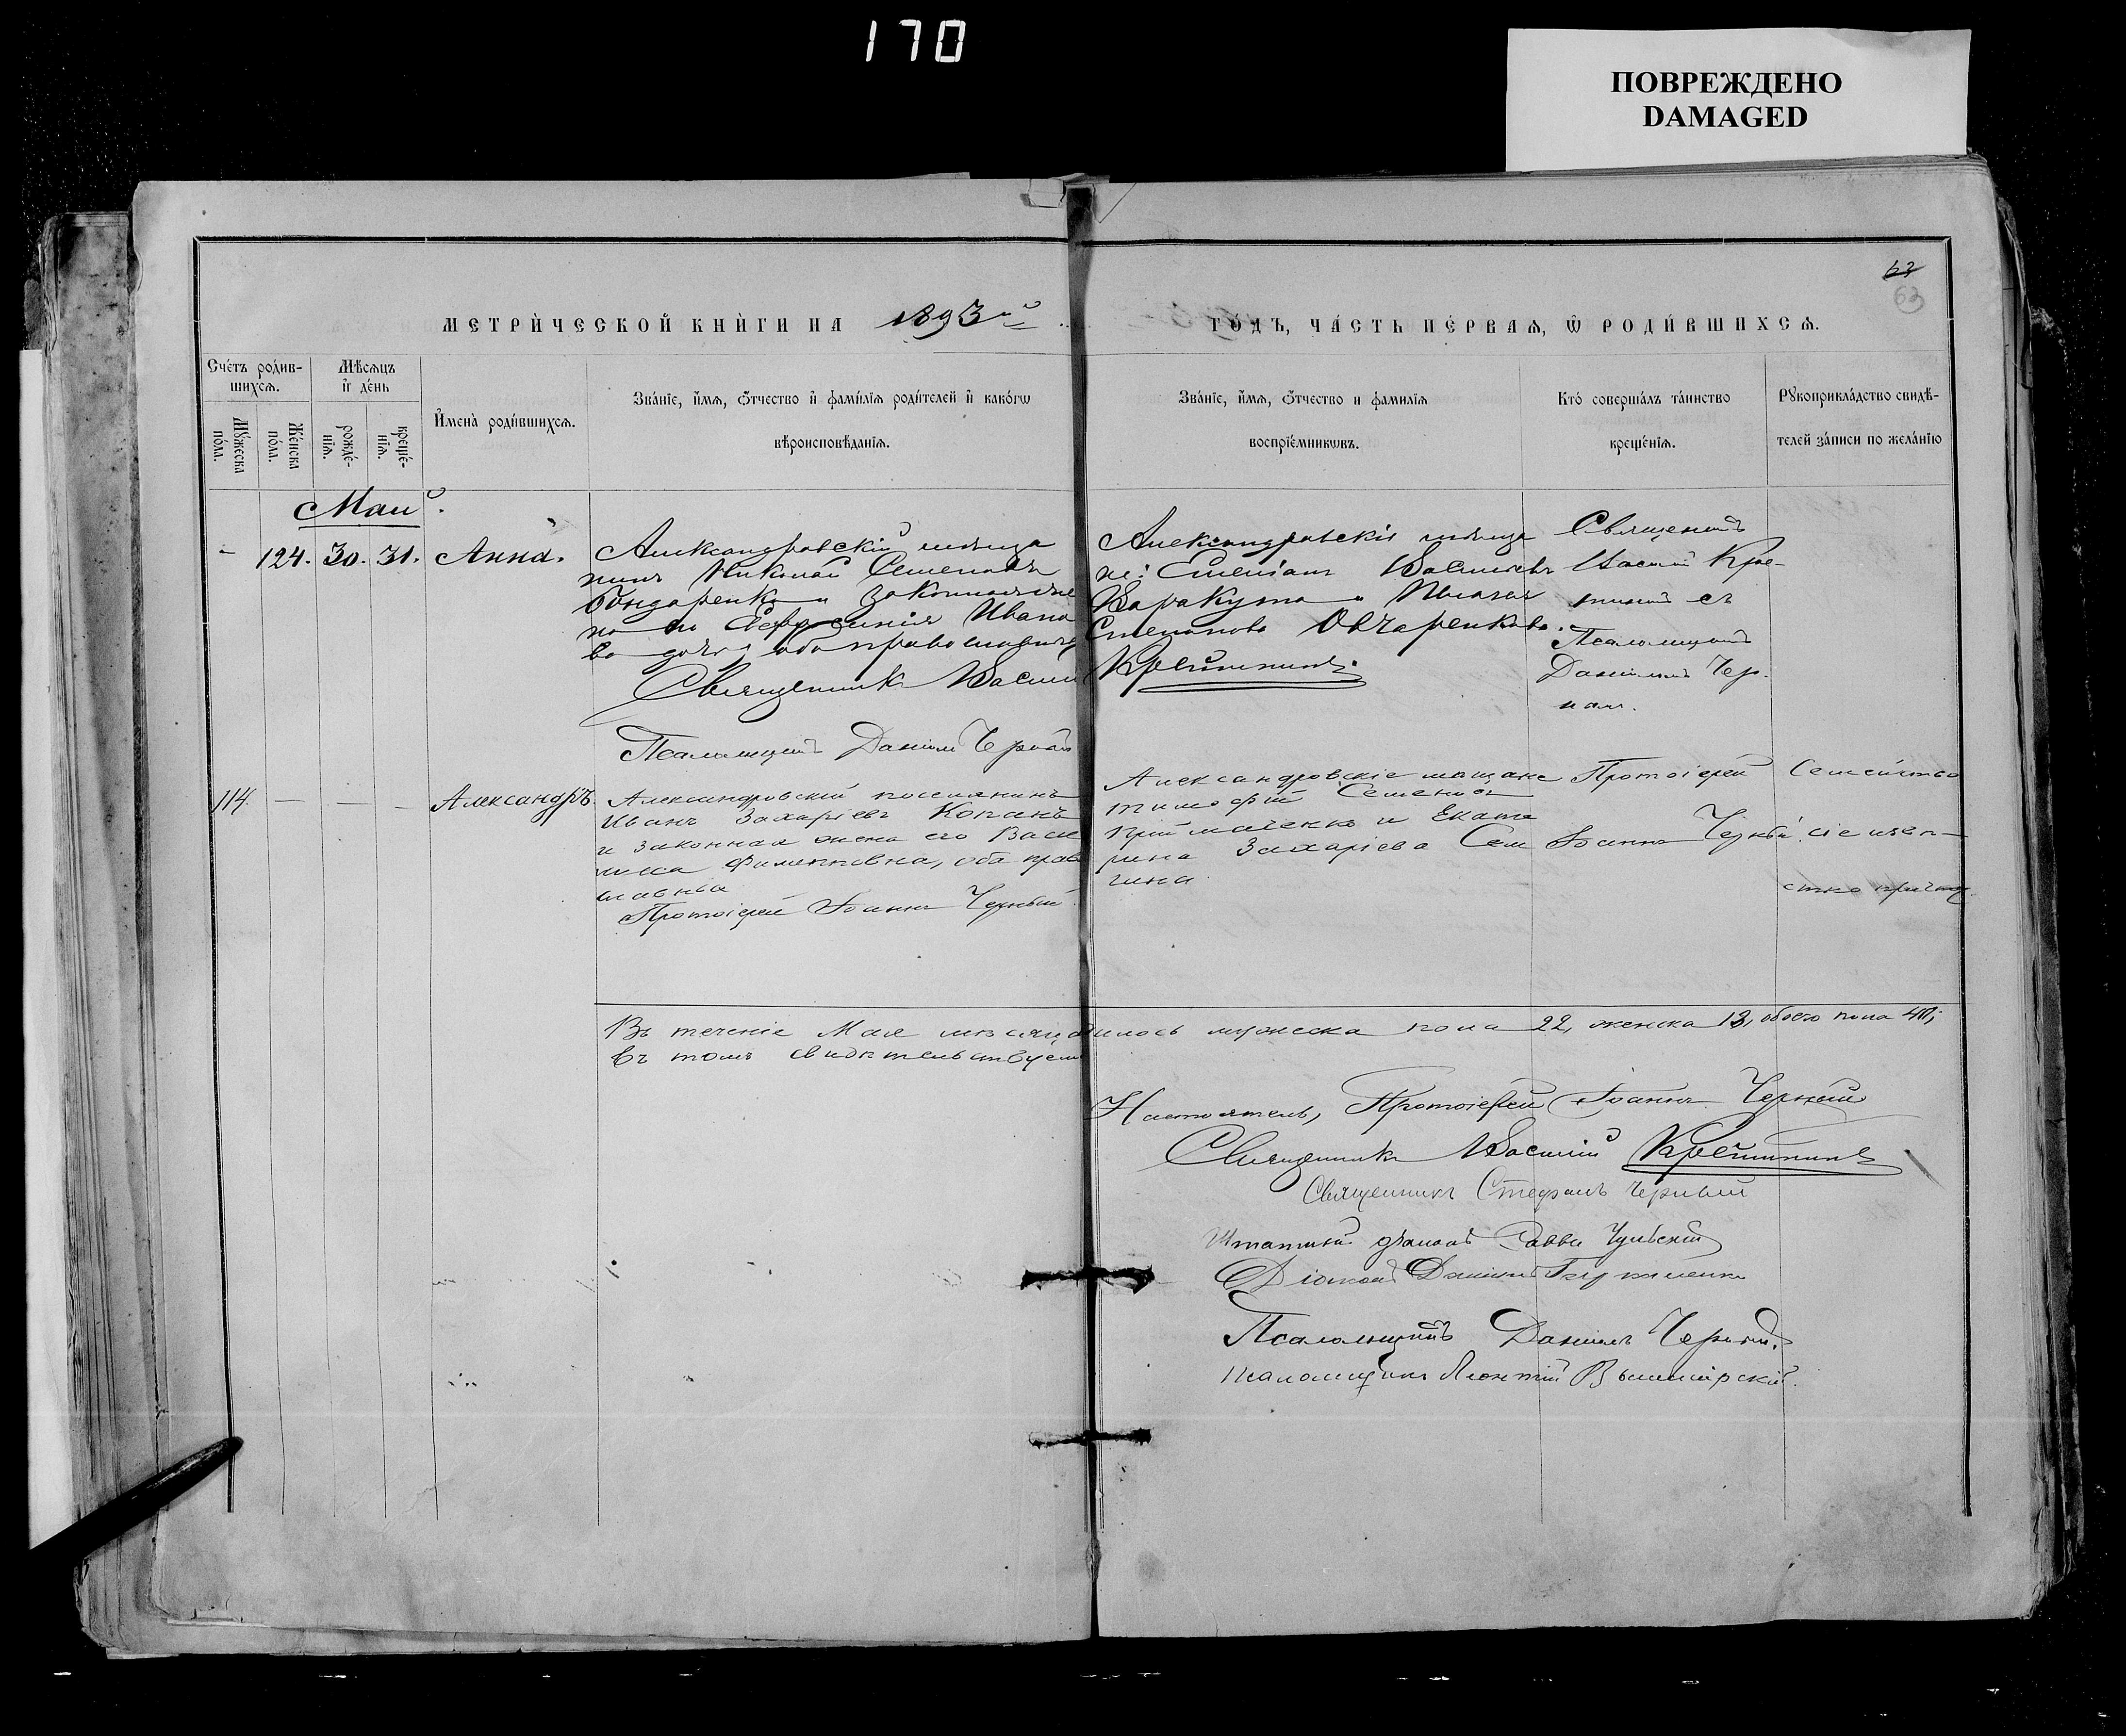 170
ПОВРЕЖДЕНО
DAMAGED
63
63
МЕТРИ́ЧЕСКОЙ КНИ́ГИ НА 1893й ГО́ДЪ, ЧА́СТЬ ПЕ́РВАѦ, Ѿ РОДИ́ВШИХСѦ.
Сче́тъ роди́в-
шихсѧ.
Мѣ́сѧцъ
и҆ де́нь
Мꙋ́жеска
по́ла.
Же́нска
по́ла.
рожде́-
нїѧ.
креще́-
нїѧ.
И҆мена̀ роди́вшихсѧ.
Зва́нїе, и҆́мѧ, ѻ҆́тчество и҆ фами́лїѧ роди́телей и҆ како́гѡ
вѣроисповѣ́данїѧ.
Зва́нїе, и҆́мѧ, ѻ҆́тчество и фамилїѧ
воспрїе́мникѡвъ.
Кто́ соверша́лъ та́инство
креще́нїѧ.
Рꙋкоприкла́дство свидѣ́-
телей за́писи по жела́нїю
Май.
- 124. 30. 31. Анна.
Александровскій мѣща
нинъ Николай Семеновъ
Бондаренко и законная же
на его Евфросинія Ивано
ва дочь; оба православные
Священникъ Василій Крейтинъ
Псаломщикъ Даніилъ Черный
Александровскіе мѣща
не: Емеліанъ Васильевъ
Варакута и
Степанова Овчаренкова.
Священникъ
Василій Кре-
съ
Псаломщикомъ
Даніиломъ Чер-
нымъ.
114. — — — Александръ.
Александровскій поселянинъ
Иванъ Захаріевъ Копанъ
и законная жена его Васи
лиса Филипповна, оба прав
славные
Протоіерей Іоаннъ Черный
Александровскіе мѣщане
Тимофей Семеновъ
Приймаченко и Екате
рина Захаріева Сем
гина
Протоіерей
Іоаннъ Черный
Въ теченіе Мая мѣсяца родилось мужеска пола 22, женска 18, обоего пола 40;
въ томъ свидѣтельствуемъ
Настоятель, Протоіерей Іоаннъ Черный
Священникъ Василій Крейтинъ
Священникъ Стефанъ Черный
Штатный діаконъ Савва
Діаконъ Даніилъ
Псаломщикъ Даніилъ Черный.
Псаломщикъ Леонтій